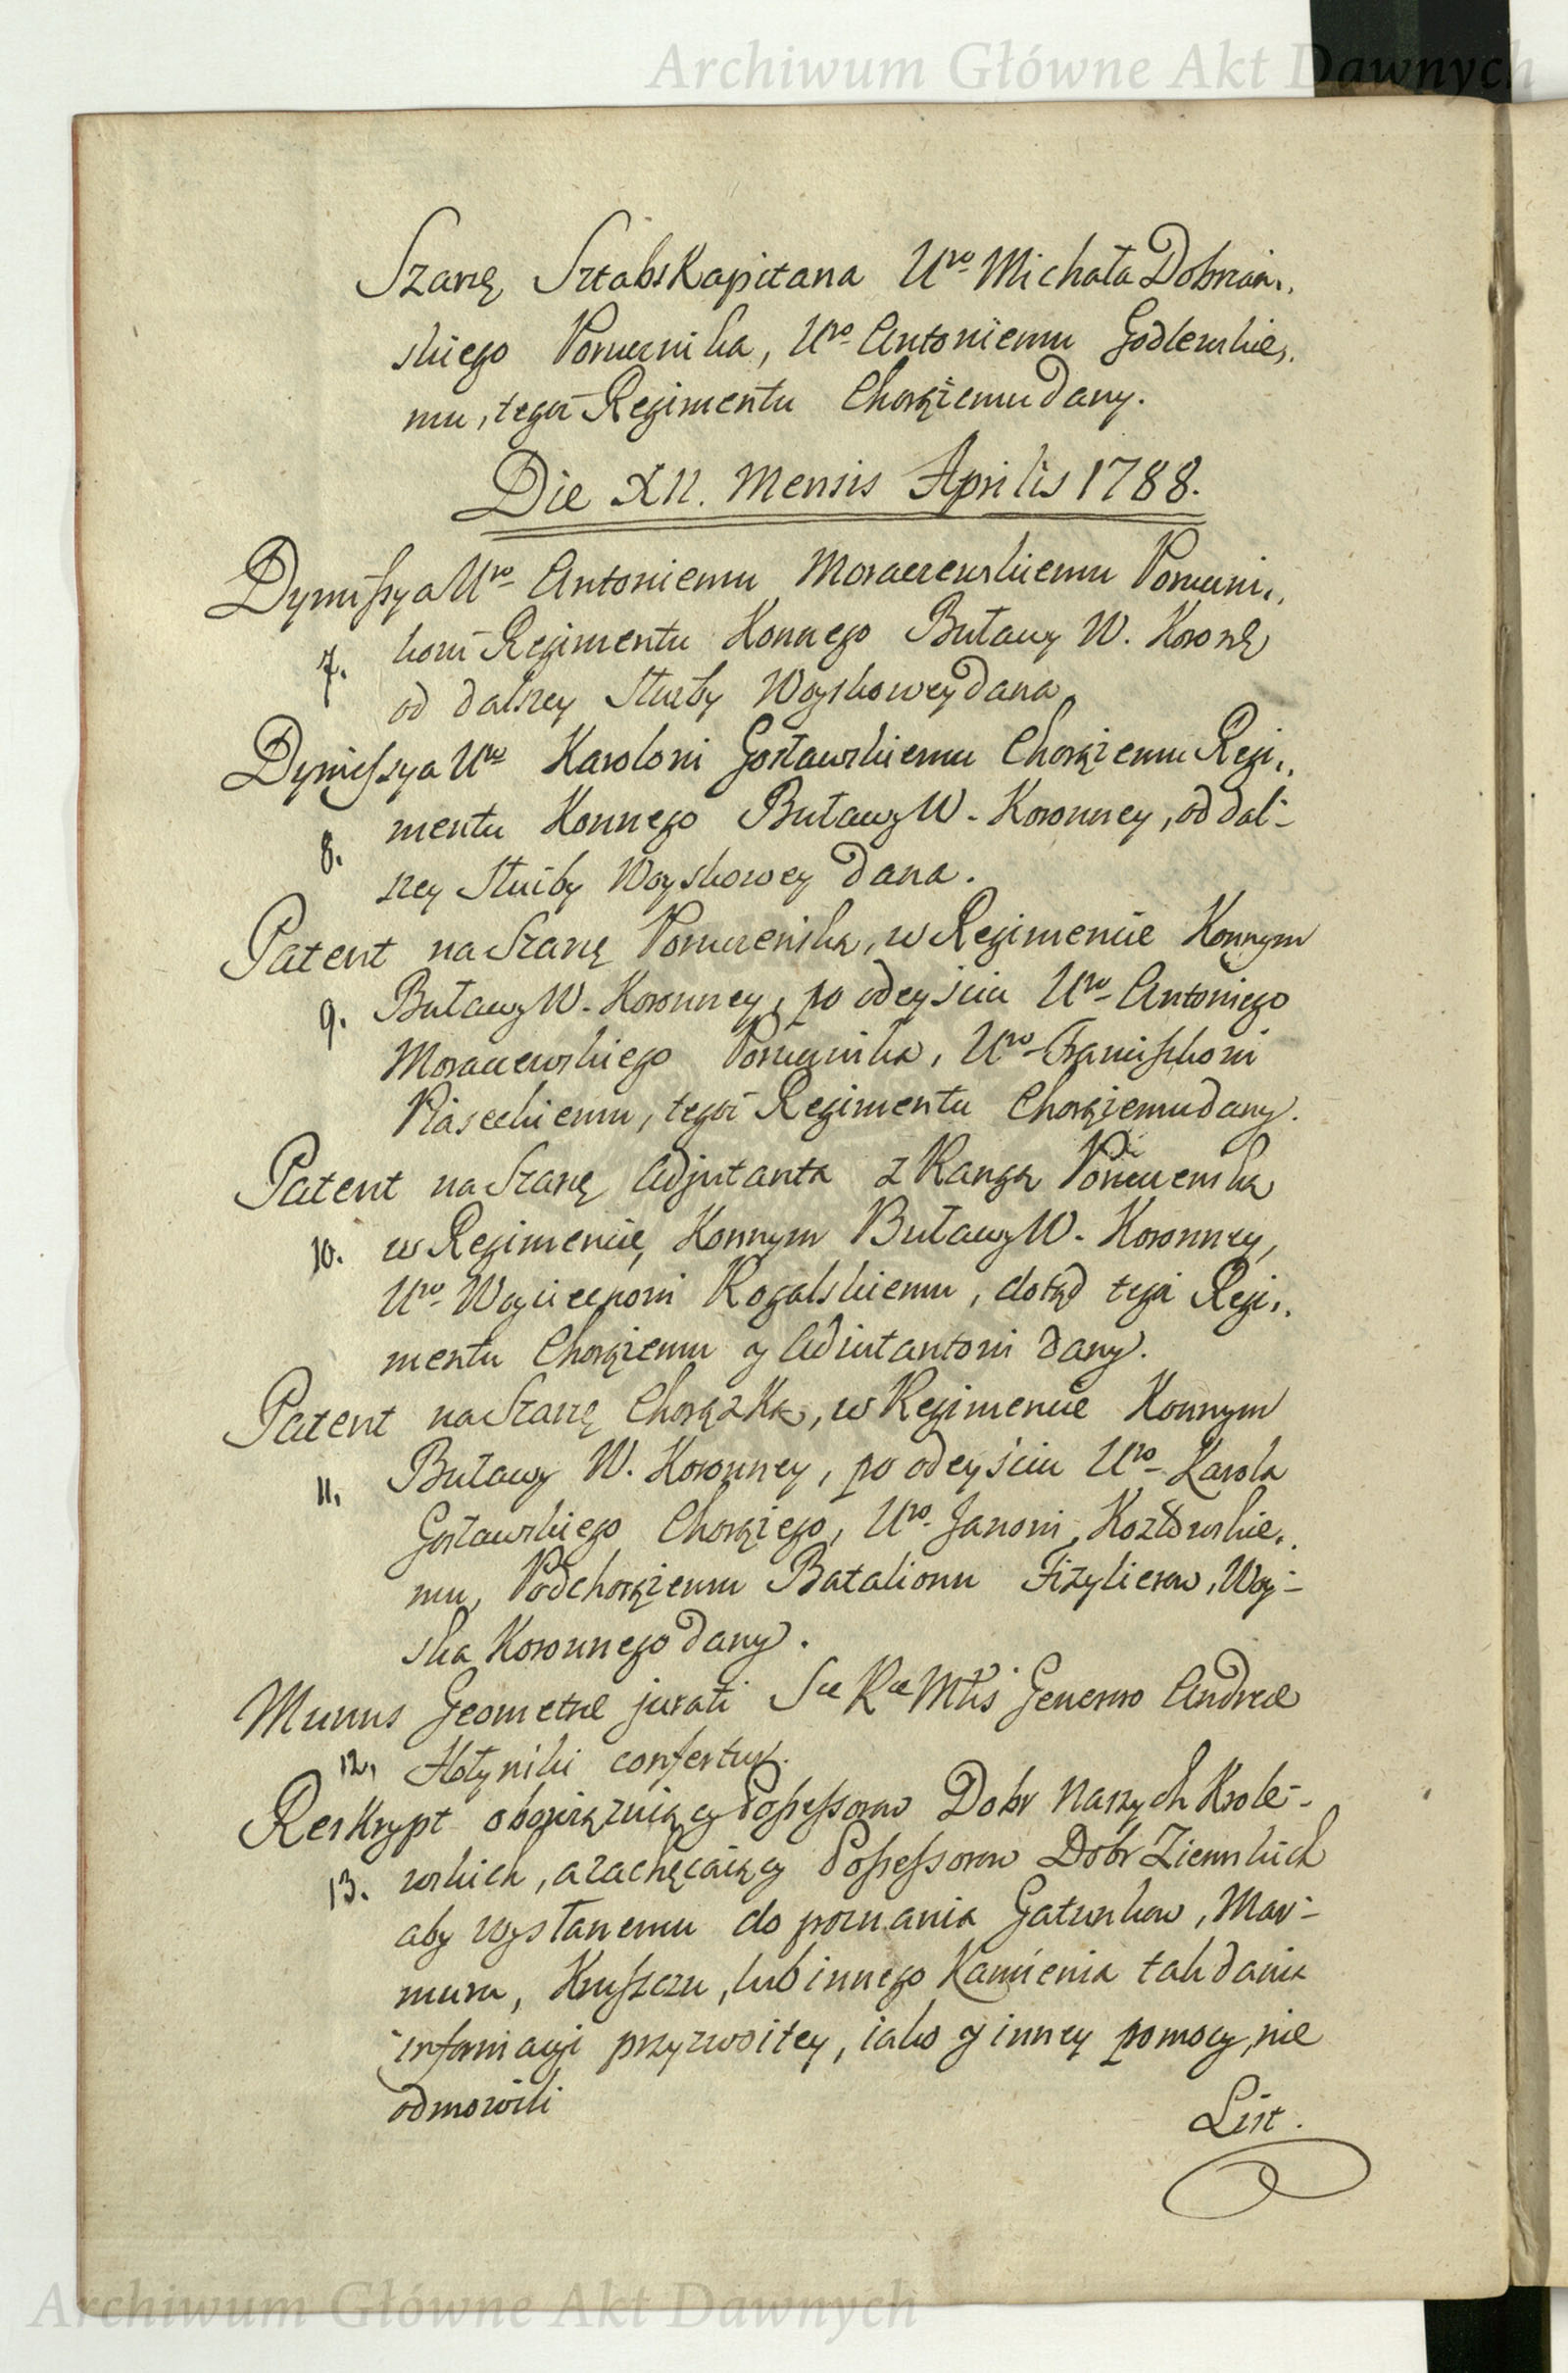 Archiwum Główne Akt Dawnych
Szarżę SztabsKapitana Uro Michała Dobrzań..
skiego Porucznika, Uro Antoniemu Godlewskie,.
mu, tegoż Regimentu Chorążemu dany.
Die XII. Mensis Aprilis 1788.
Dymissya Uro Antoniemu Moraczewskiemu Poruczni.,
7. kowi Regimentu Konnego Buławy W. Koronę
od dalszey Służby Woyskowey dana
Dymissya Uro Karolowi Gosławskiemu Chorążemu Regi.,
8. mentu Konnego Buławy W. Koronney, od dal-
szey Służby Woyskowey dana.
Patent na Szarżę Porucznika, w Regimencie Konnym
9. Buławy W. Koronney, po odeyściu Uro Antoniego
Moraczewskiego Porucznika, Uro Franciszkowi
Piaseckiemu, tegoż Regimentu Chorążemu dany.
Patent na Szarżę Adjutanta z Rangą Porucznika
10. w Regimencie, Konnym Buławy W. Koronney,
Uro Woyciechowi Rogalskiemu, dotąd tegoż Regi.,
mentu Chorążemu y Adiutantowi dany.
Patent na Szarżę Chorążka, w Regimencie Konnym
11. Buławy W. Koronney, po odeyściu Uro Karola
Gosławskiego Chorążego, Uro Janowi, Kozłowskie..
mu, Podchorążemu Batalionu Fizylierow, Woy-
ska Koronnego dany.
Munus Geometræ jurati Sæ Ræ Mtis Generoso Andreæ
12. Hołyniki confertur.
Reskrypt obowiązuiący Possessorow Dobr Naszych Krole-
13. wskich, a zachęcaiący Possessorow Dobr Ziemskich
aby wysłanemu do poznania Gatunkow, Mar-
muru, Kruszczu, lub innego Kamienia tak dania
informacyi przyzwoitey, iako y inney pomocy, nie
odmowili
List.
Archiwum Główne Akt Dawnych